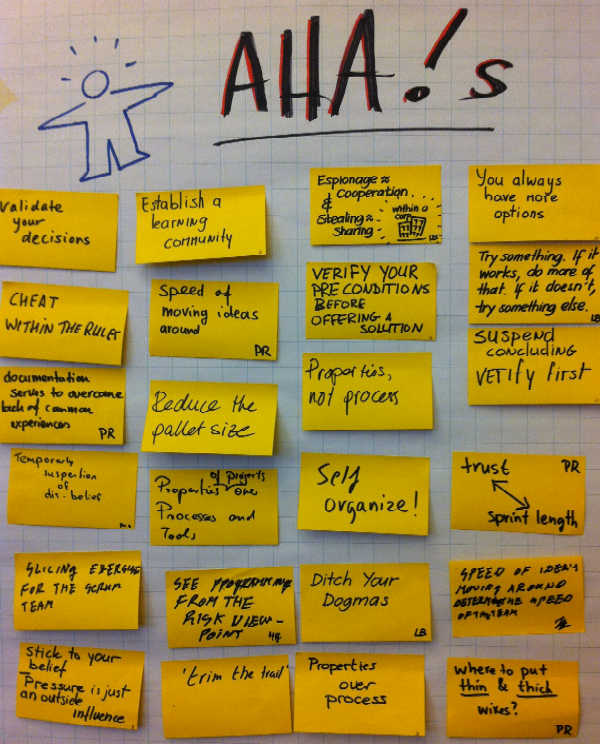 AHA!s
Validate
your
decisions
Establish a
learning
community
Espionage ≈
Cooperation
&
Stealing ≈
Sharing
within a
LB
You always
have more
options
CHEAT
WITHIN THE RULES
Speed of
moving ideas
around
PR
VERIFY YOUR
PRECONDITIONS
BEFORE
OFFERING A
SOLUTION
Try something. If it
works, do more of
that. if it doesn't,
try something else.
LB
documentation
serves to overcome
lack of common
experiences
PR
Reduce the
pallet size
Properties,
not process
SUSPEND
CONCLUDING
VERIFY first
Temporarly
suspention
of
dis-belief
Properties over
of projects
Processes and
Tools
Self
organize!
trust
PR
Sprint length
SLICING EXERCISE
FOR THE SCRUM
TEAM
SEE PROGRAMMING
FROM THE
RISK VIEW-
POINT
Ditch Your
Dogmas
LB
SPEED OF IDEAS
MOVING AROUND
DETERMINE THE SPEED
OF THE TEAM
Stick to your
belief
Pressure is just
an outside
influence
'trim the trail'
Properties
over
process
Where to put
thin & thick
wires?
PR